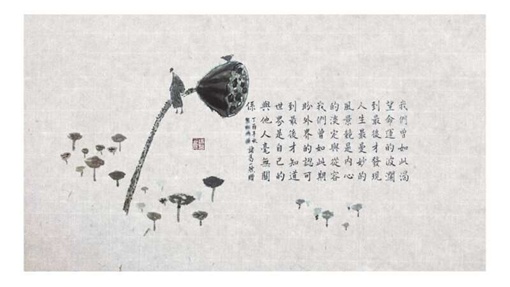 我們曾如此渴
望命運的波瀾
到最後才發現
人生最曼妙的
風景竟是內心
的淡定與從容
我們曾如此期
盼外界的認可
到最後才知道
世界是自己的
與他人毫無關
係